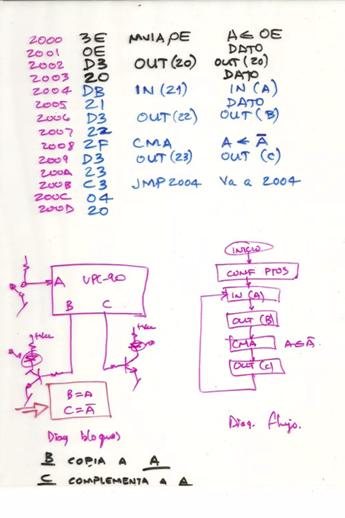 2000 3E MVI A,0E A ← 0E
2001 0E DATO
2002 D3 OUT (20) OUT (20)
2003 20 DATO
2004 DB IN (21) IN (A)
2005 21 DATO
2006 D3 OUT (22) OUT (B)
2007 22
2008 2F CMA A ← A̅
2009 D3 OUT (23) OUT (C)
200A 23
200B C3 JMP 2004 Va a 2004
200C 04
200D 20
A UPC-90
B C
+Vcc
+Vcc
B = A
C = A̅
Diag bloques
INICIO
CONF PTOS
IN (A)
OUT (B)
CMA A ← A̅
OUT (C)
Diag. flujo.
B COPIA A A
C COMPLEMENTA A A